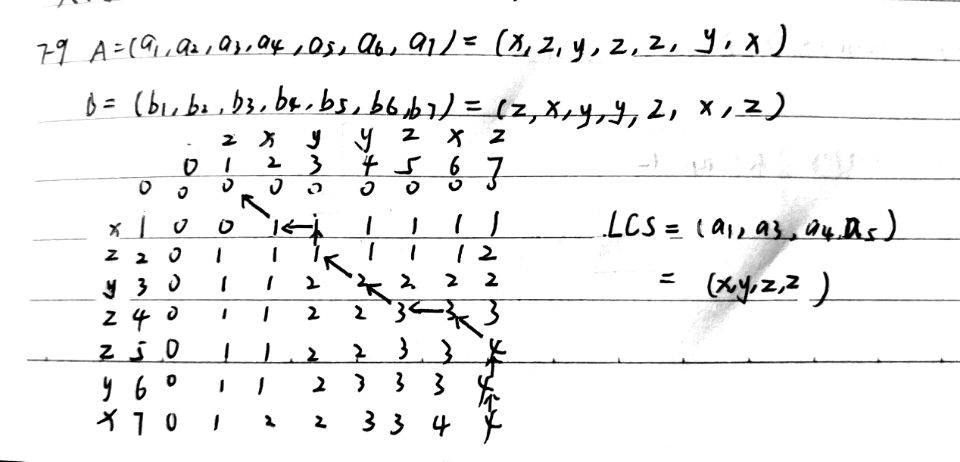 7-9 A=(a1,a2,a3,a4,a5,a6,a7)=(x,z,y,z,z,y,x)
B=(b1,b2,b3,b4,b5,b6,b7)=(z,x,y,y,z,x,z)
z x y y z x z
0 1 2 3 4 5 6 7
0 0 0 0 0 0 0 0 0
x 1 0 0 1 1 1 1 1 1
z 2 0 1 1 1 1 1 1 2
y 3 0 1 1 2 2 2 2 2
z 4 0 1 1 2 2 3 3 3
z 5 0 1 1 2 2 3 3 4
y 6 0 1 1 2 3 3 3 4
x 7 0 1 2 2 3 3 4 4
LCS=(a1,a3,a4,a5)
=(x,y,z,z)